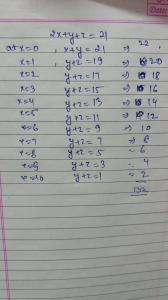 2x+y+z=21
at x=0, x+y=21 ⇒ 22
x=1 y+z=19 ⇒ 20
x=2 y+z=17 ⇒ 18
x=3 y+z=15 ⇒ 16
x=4 y+z=13 ⇒ 14
x=5 y+z=11 ⇒ 12
x=6 y+z=9 ⇒ 10
x=7 y+z=7 ⇒ 8
x=8 y+z=5 = 6
x=9 y+z=3 = 4
x=10 y+z=1 = 2
132